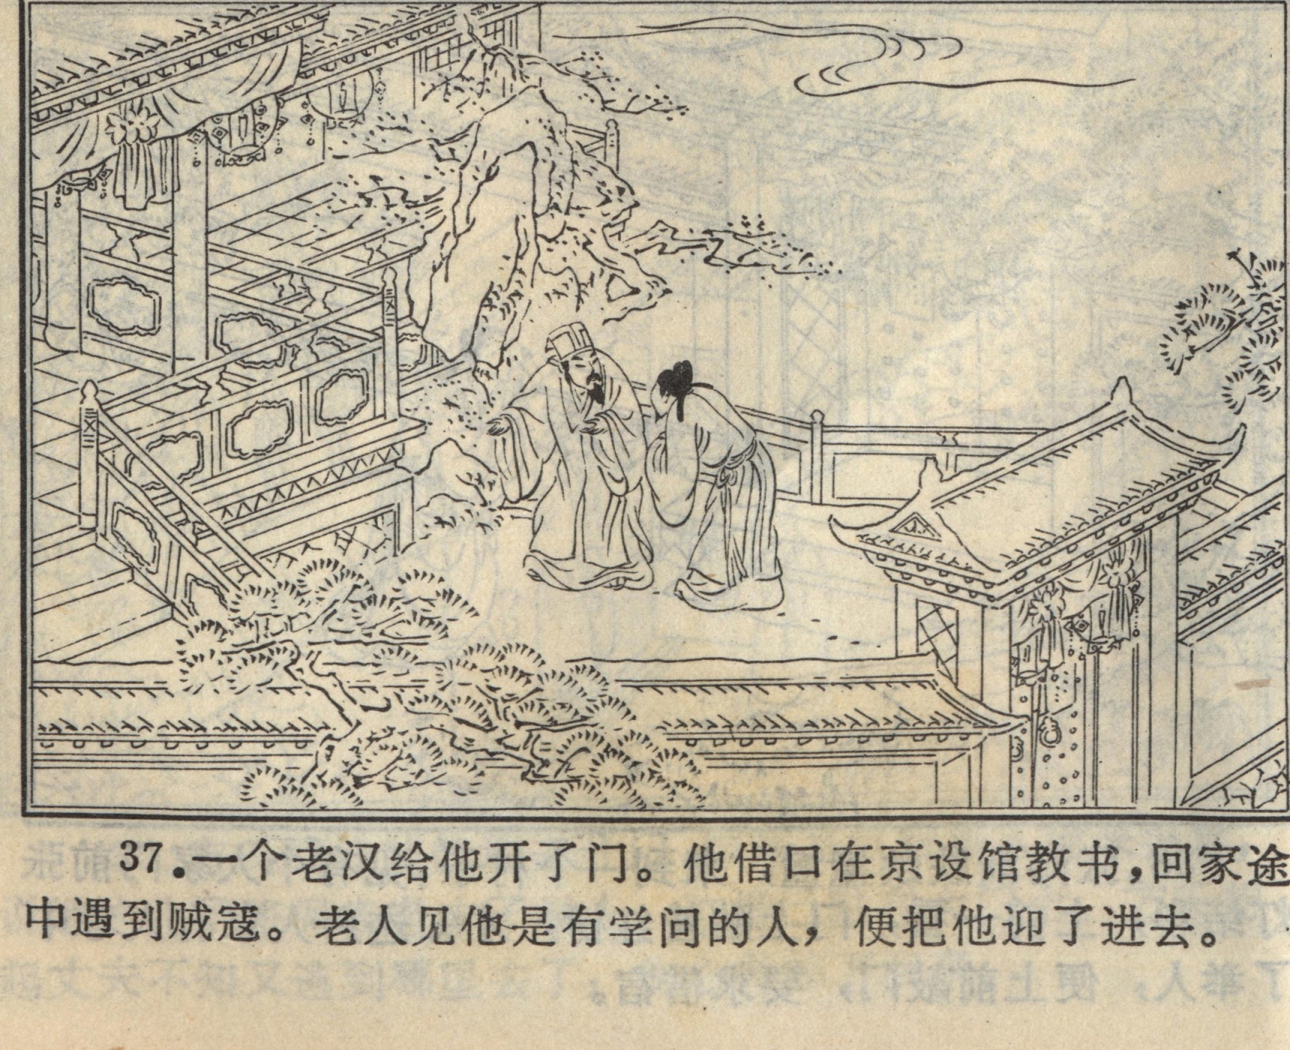 37. 一个老汉给他开了门。他借口在京设馆教书，回家途
中遇到贼寇。老人见他是有学问的人，便把他迎了进去。